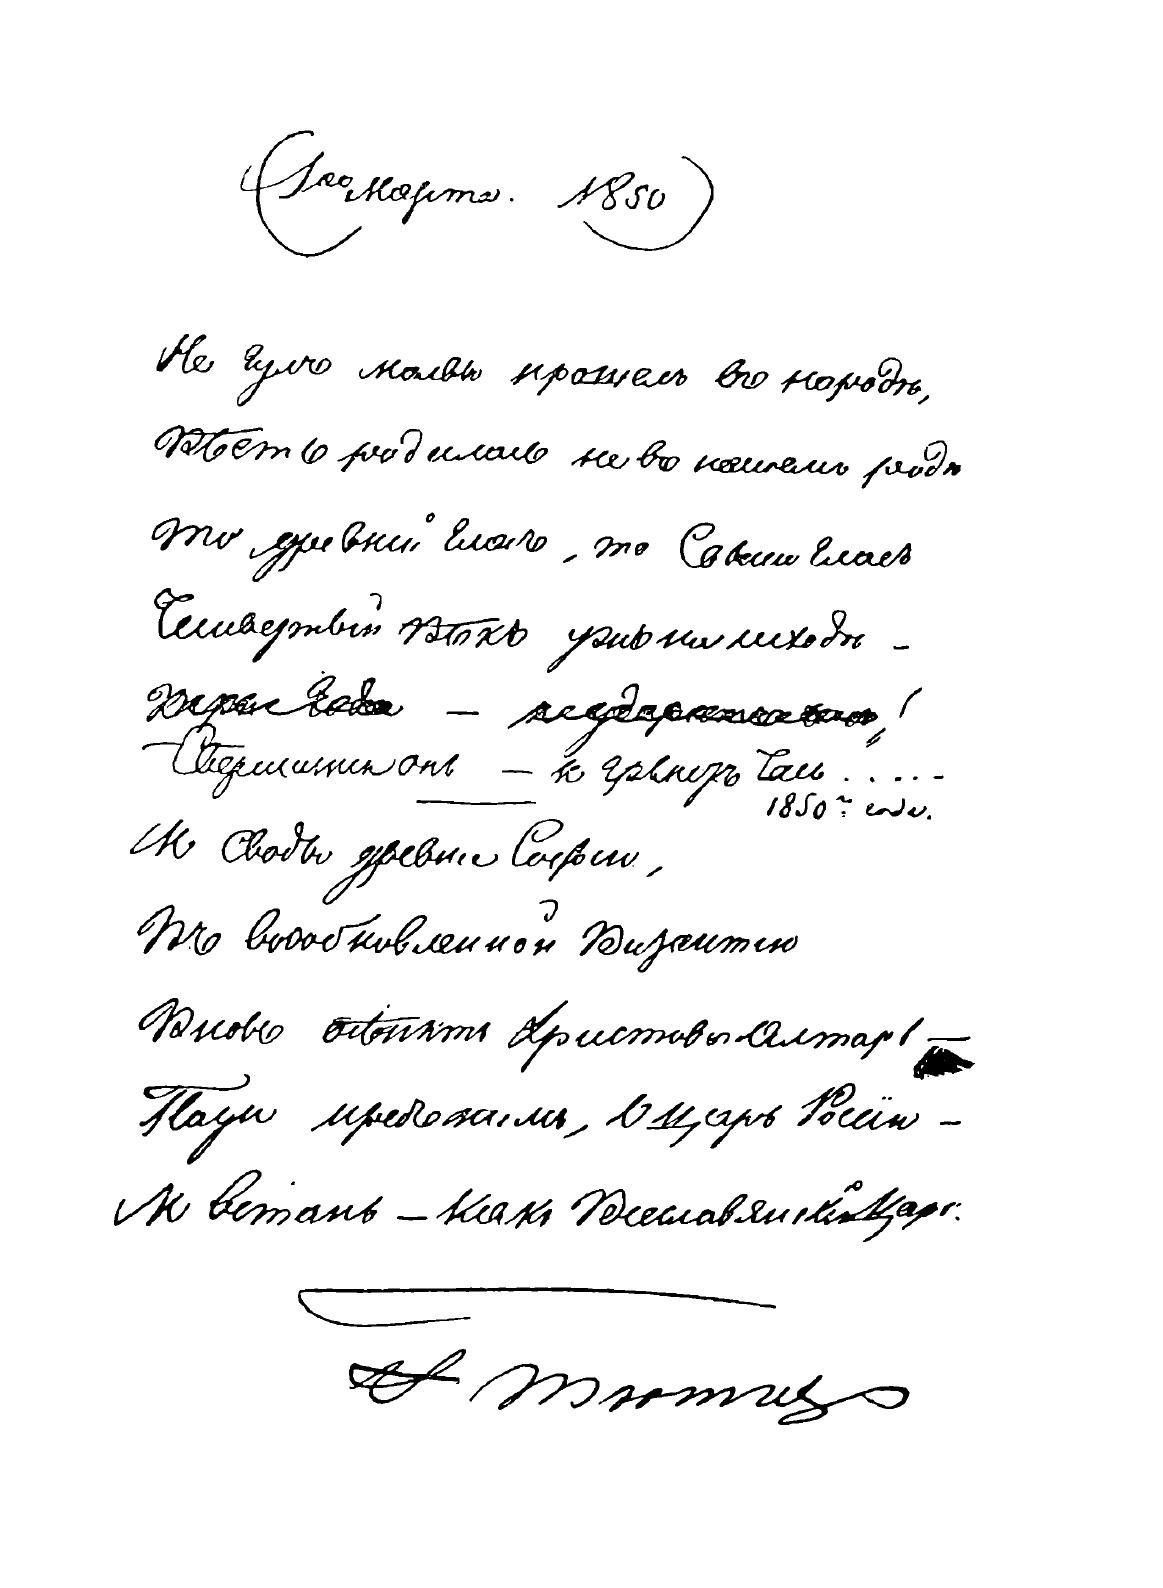 (1го Марта. 1850)
Не гулъ молвы прошелъ въ народѣ,
Вѣсть родилась не въ нашемъ родѣ
То древній гласъ, то Свыше гласъ
Четвертый Вѣкъ ужъ на исходѣ –
— !
Свершится онъ — и грянетъ Часъ .....
1850го года.
И Своды древніе Софіи,
Въ возобновленной Византіи
Вновь осѣнятъ Христовъ Алтарь —
Пади предъ нимъ, о Царь Россіи –
И встань — какъ Всеславянскій Царь.
Ѳ Тютчевъ